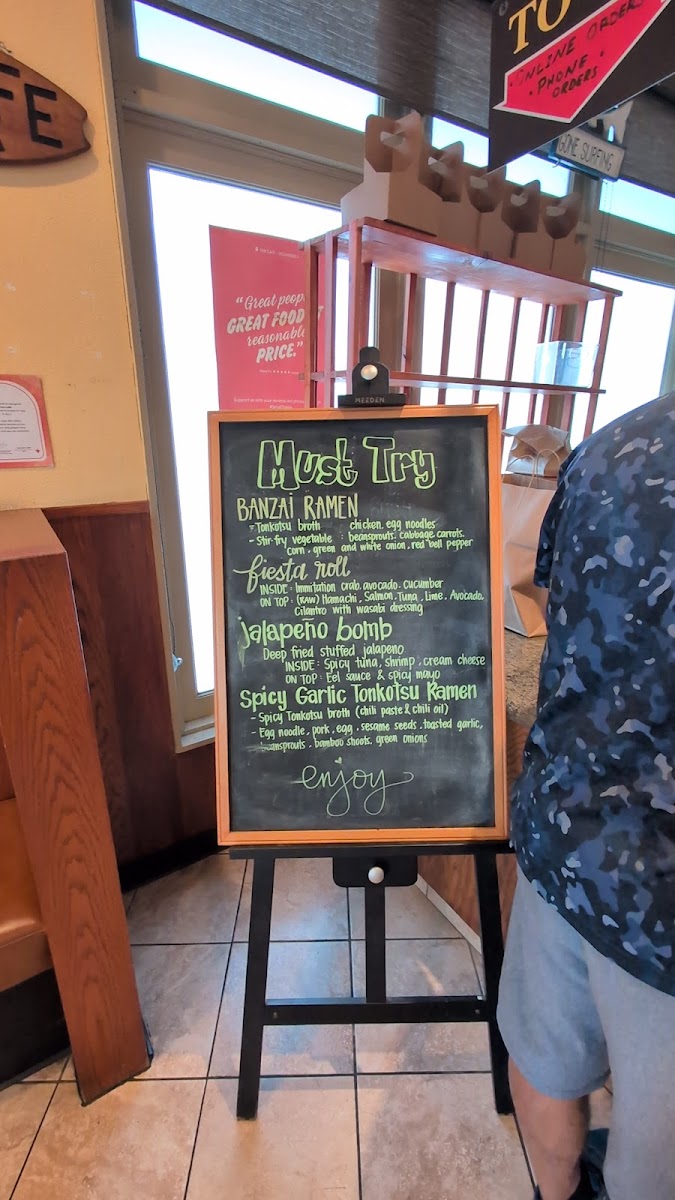 FE
TO
ONLINE ORDERS
• PHONE •
ORDERS
GONE SURFING
“Great
GREAT FOOD
reasonable
PRICE.”
MEEDEN
Must Try
BANZAI RAMEN
- Tonkotsu broth chicken, egg noodles
- Stir fry vegetable : beansprouts, cabbage, carrots,
corn, green and white onion, red bell pepper
fiesta roll
INSIDE: Immitation crab, avocado, cucumber
ON TOP: (RAW) Hamachi, Salmon, Tuna, Lime, Avocado,
Cilantro with wasabi dressing
jalapeño bomb
Deep fried stuffed jalapeno
INSIDE: Spicy tuna, shrimp, cream cheese
ON TOP: Eel sauce & spicy mayo
Spicy Garlic Tonkotsu Ramen
- Spicy Tonkotsu broth (chili paste & chili oil)
- Egg noodle, pork, egg, sesame seeds, toasted garlic,
beansprouts, bamboo shoots, green onions
enjoy